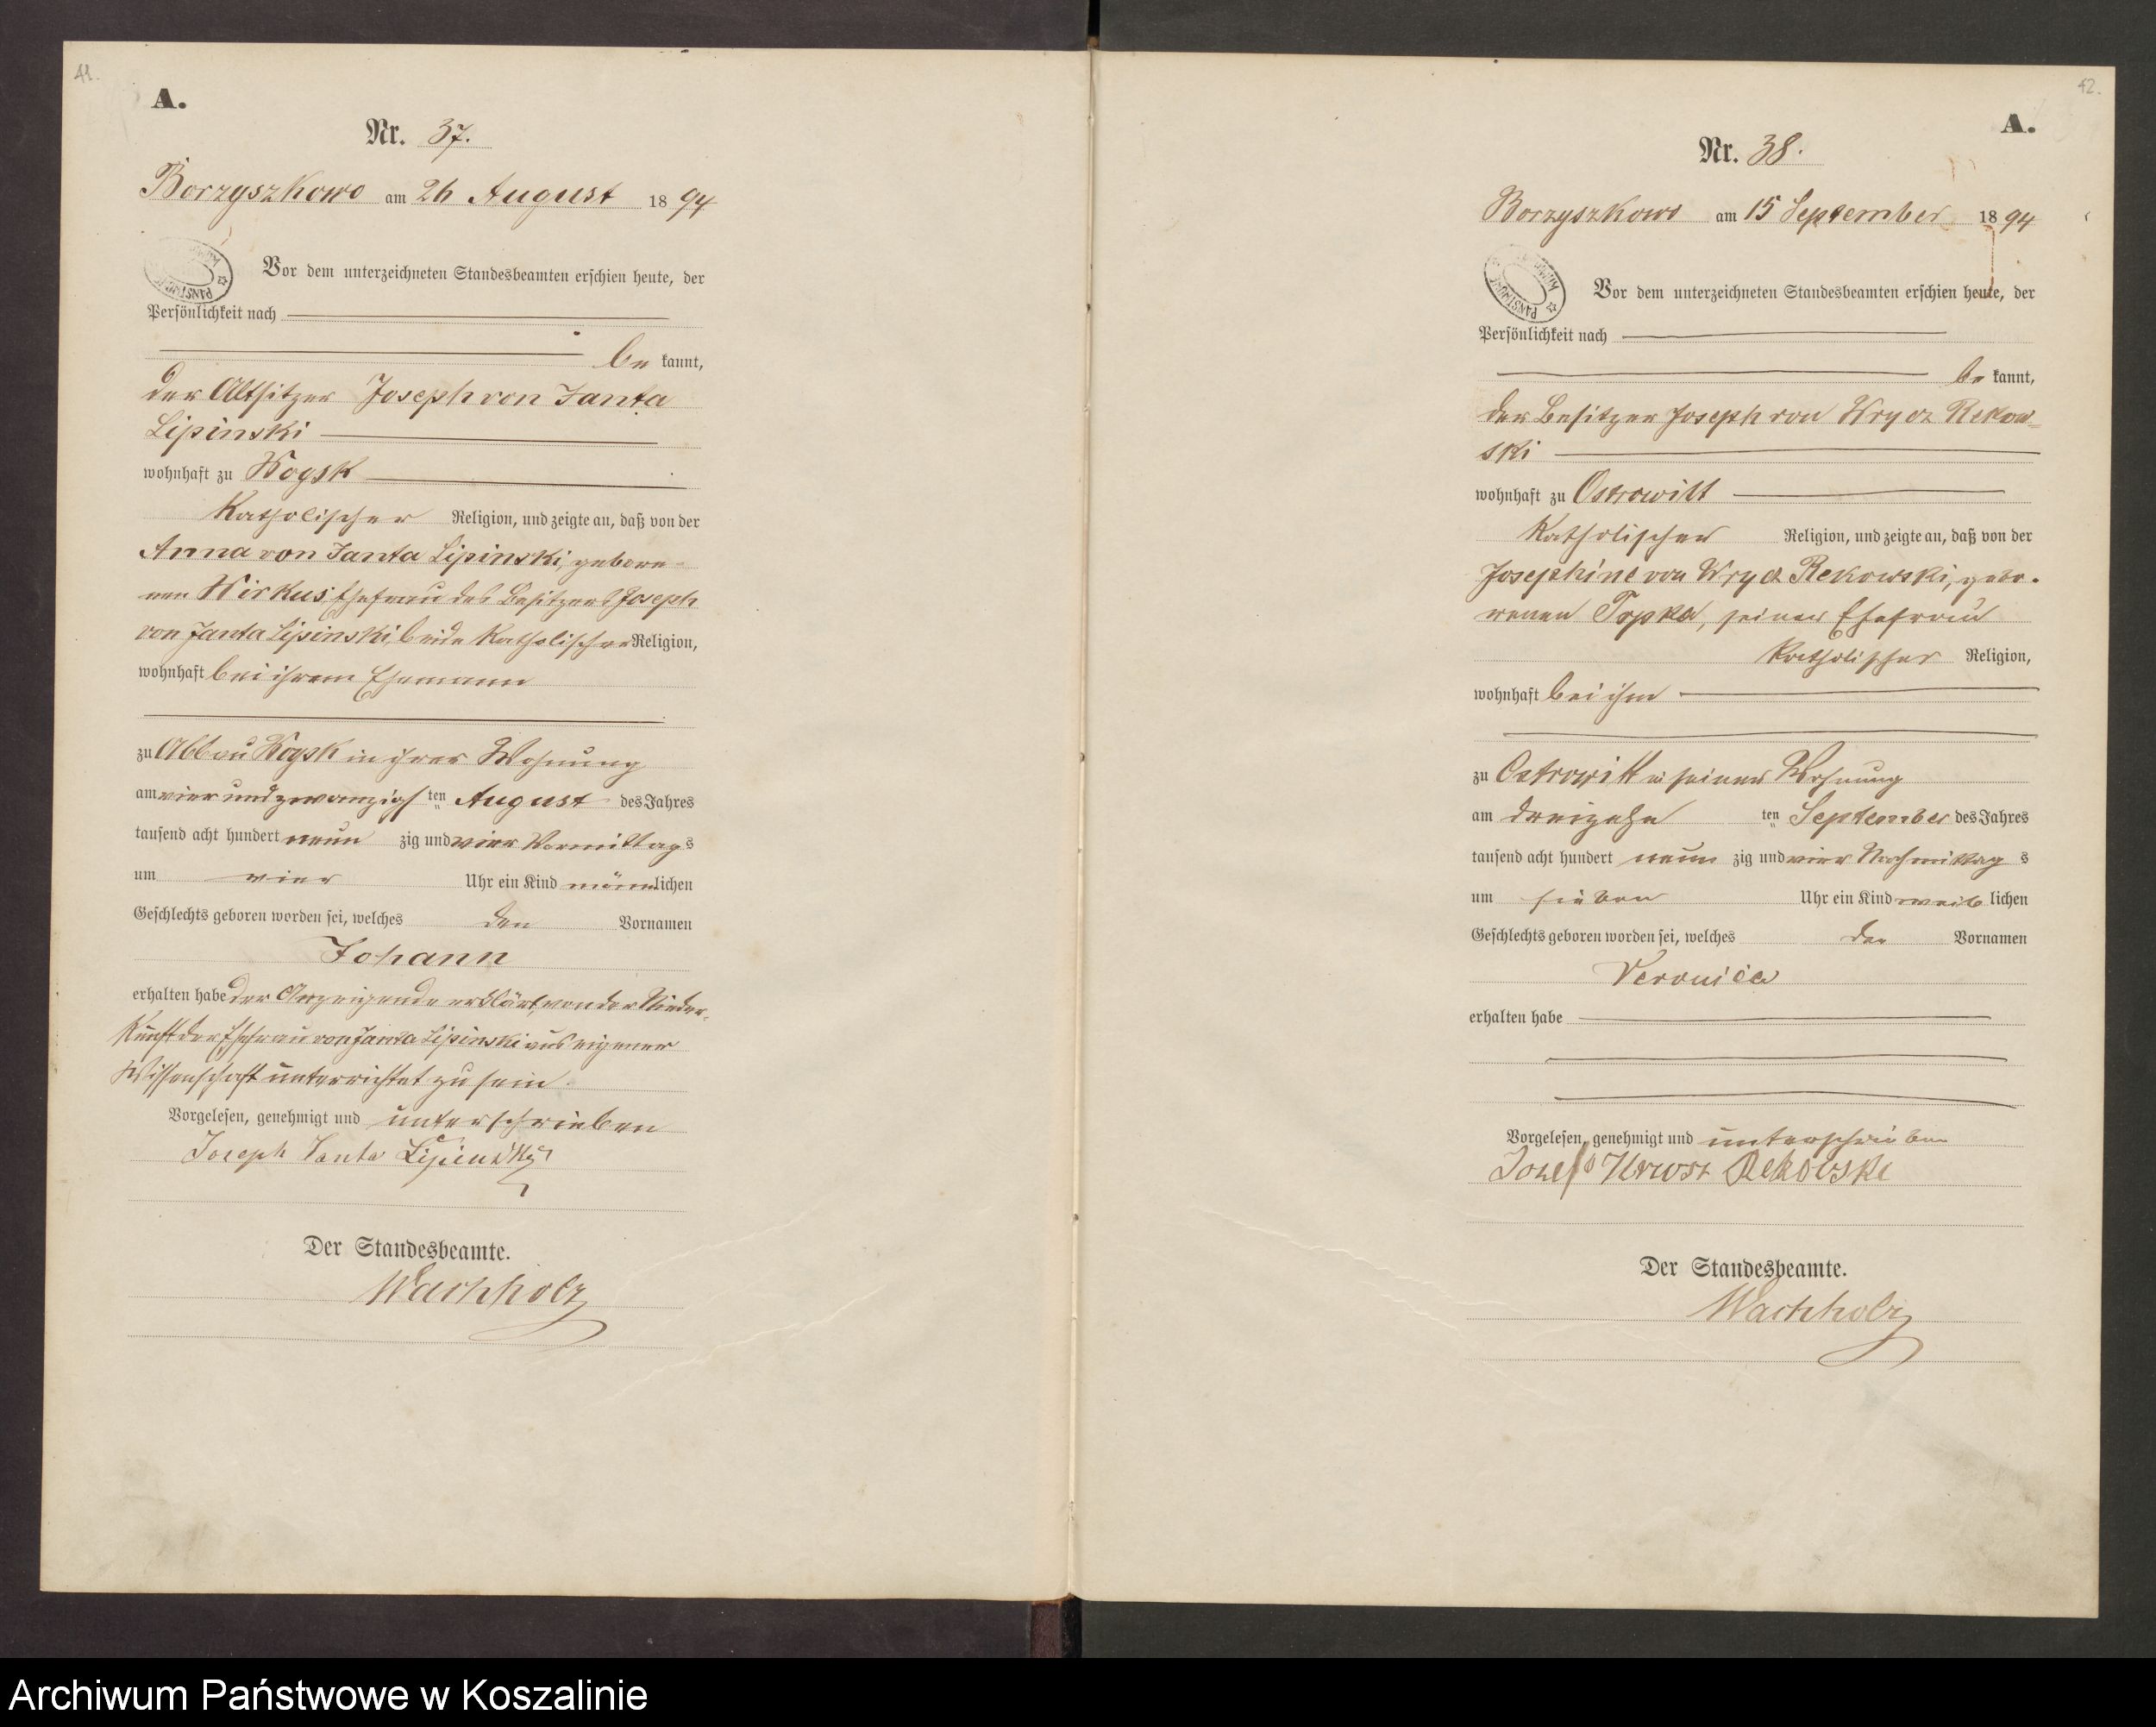 41.
A.
Nr. 37.
Borzyszkowo am 26 August 1894
Vor dem unterzeichneten Standesbeamten erschien heute, der
Persönlichkeit nach
be kannt,
der Altsitzer Joseph von Janta
Lipinski
wohnhaft zu Woysk
Katholischer Religion, und zeigte an, daß von der
Anna von Janta Lipinski, gebore-
nen Wirkus, Ehefrau des Besitzers Joseph
von Janta Lipinski, beide Katholischer Religion,
wohnhaft bei ihrem Ehemann
zu Abbau Woysk in ihrer Wohnung
am vier und zwanzigsten August des Jahres
tausend acht hundert neun zig und vier Vormittags
um vier Uhr ein Kind männlichen
Geschlechts geboren worden sei, welches den Vornamen
Johann
erhalten habe der Anzeigende erklärt, von der Nieder-
kunft der Ehefrau von Janta Lipinski aus eigener
Wissenschaft unterrichtet zu sein.
Vorgelesen, genehmigt und unterschrieben
Joseph Janta Lipienski
Der Standesbeamte.
Wachholz
42.
A.
Nr. 38.
Borzyszkowo am 15 September 1894
Vor dem unterzeichneten Standesbeamten erschien heute, der
Persönlichkeit nach
be kannt,
der Besitzer Joseph von Wrycz Rekow-
ski
wohnhaft zu Ostrowitt
Katholischer Religion, und zeigte an, daß von der
Josephine von Wrycz Rekowski, gebo-
renen Topka, seiner Ehefrau
Katholischer Religion,
wohnhaft bei ihm
zu Ostrowitt in seiner Wohnung
am dreizehn ten September des Jahres
tausend acht hundert neun zig und vier Nachmittag s
um sieben Uhr ein Kind weib lichen
Geschlechts geboren worden sei, welches den Vornamen
Veronica
erhalten habe
Vorgelesen, genehmigt und unterschrieben
Rekowski
Der Standesbeamte.
Wachholz
Archiwum Państwowe w Koszalinie